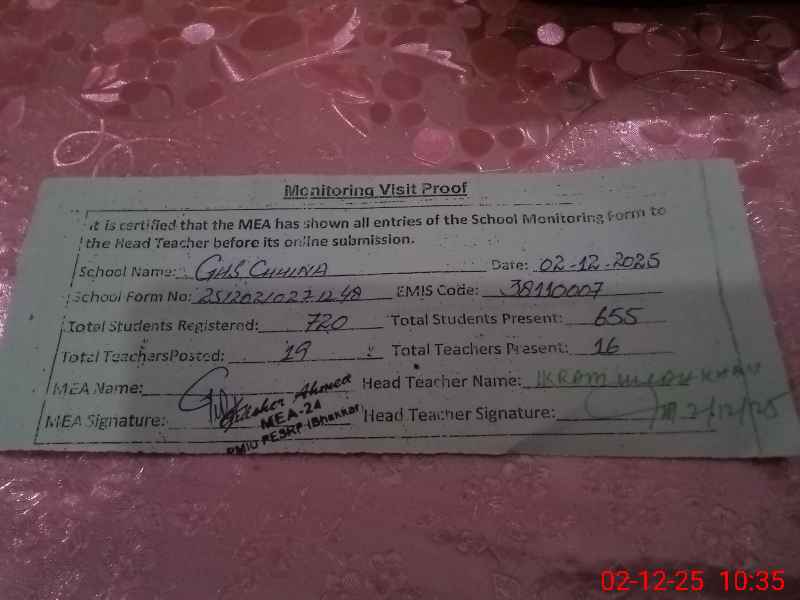 Monitoring Visit Proof
it is certified that the MEA has shown all entries of the School Monitoring Form to
the Head Teacher before its online submission.
School Name: GHS CHHINA Date: 02-12-2025
School Form No: EMIS Code: 38110007
Total Students Registered: 720 Total Students Present: 655
Total TeachersPosted: 19 Total Teachers Present: 16
MEA Name: Head Teacher Name: IKRAM ULLAH KHAN
MEA Signature: Iftikhar Ahmed Head Teacher Signature: 2/12/25
MEA-24
PMIU PESRP (Bhakkar)
02-12-25 10:35